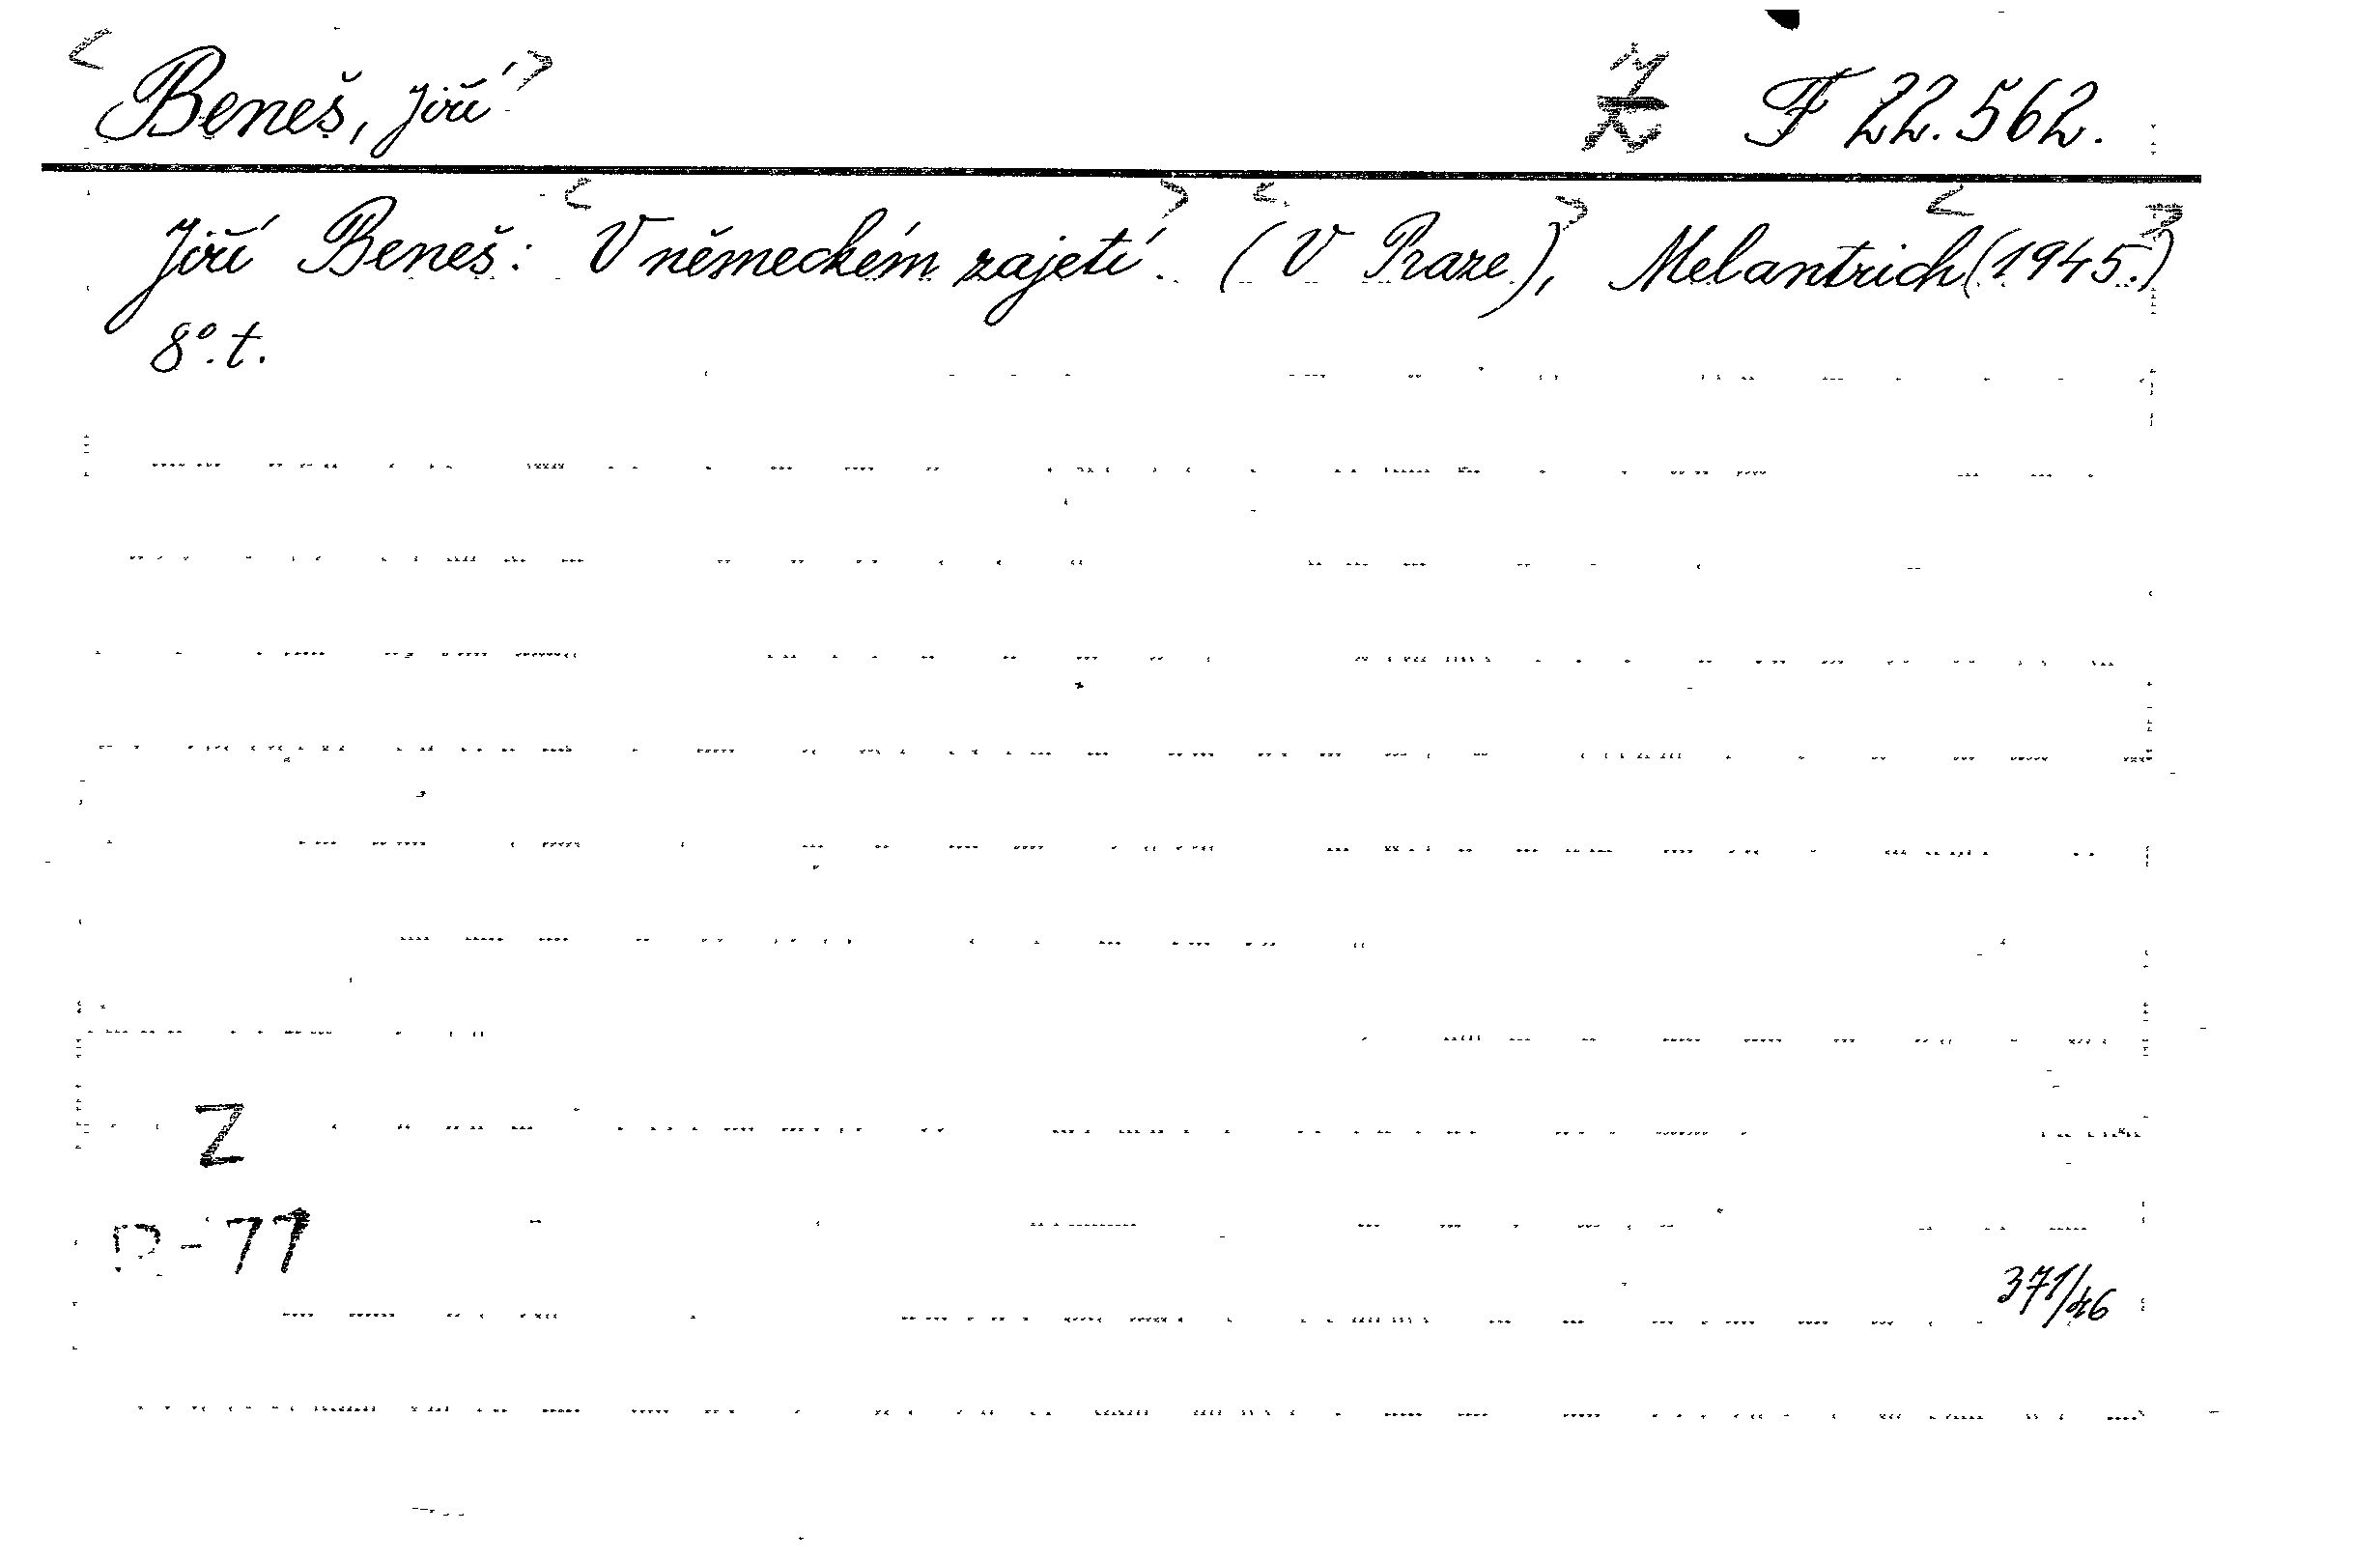 <Beneš, Jiří> F 22.562.
Jiří Beneš: <V německém zajetí.> <(V Praze)>, Melantrich <(1945.)>
8°. t.
Z
R-77
371/46